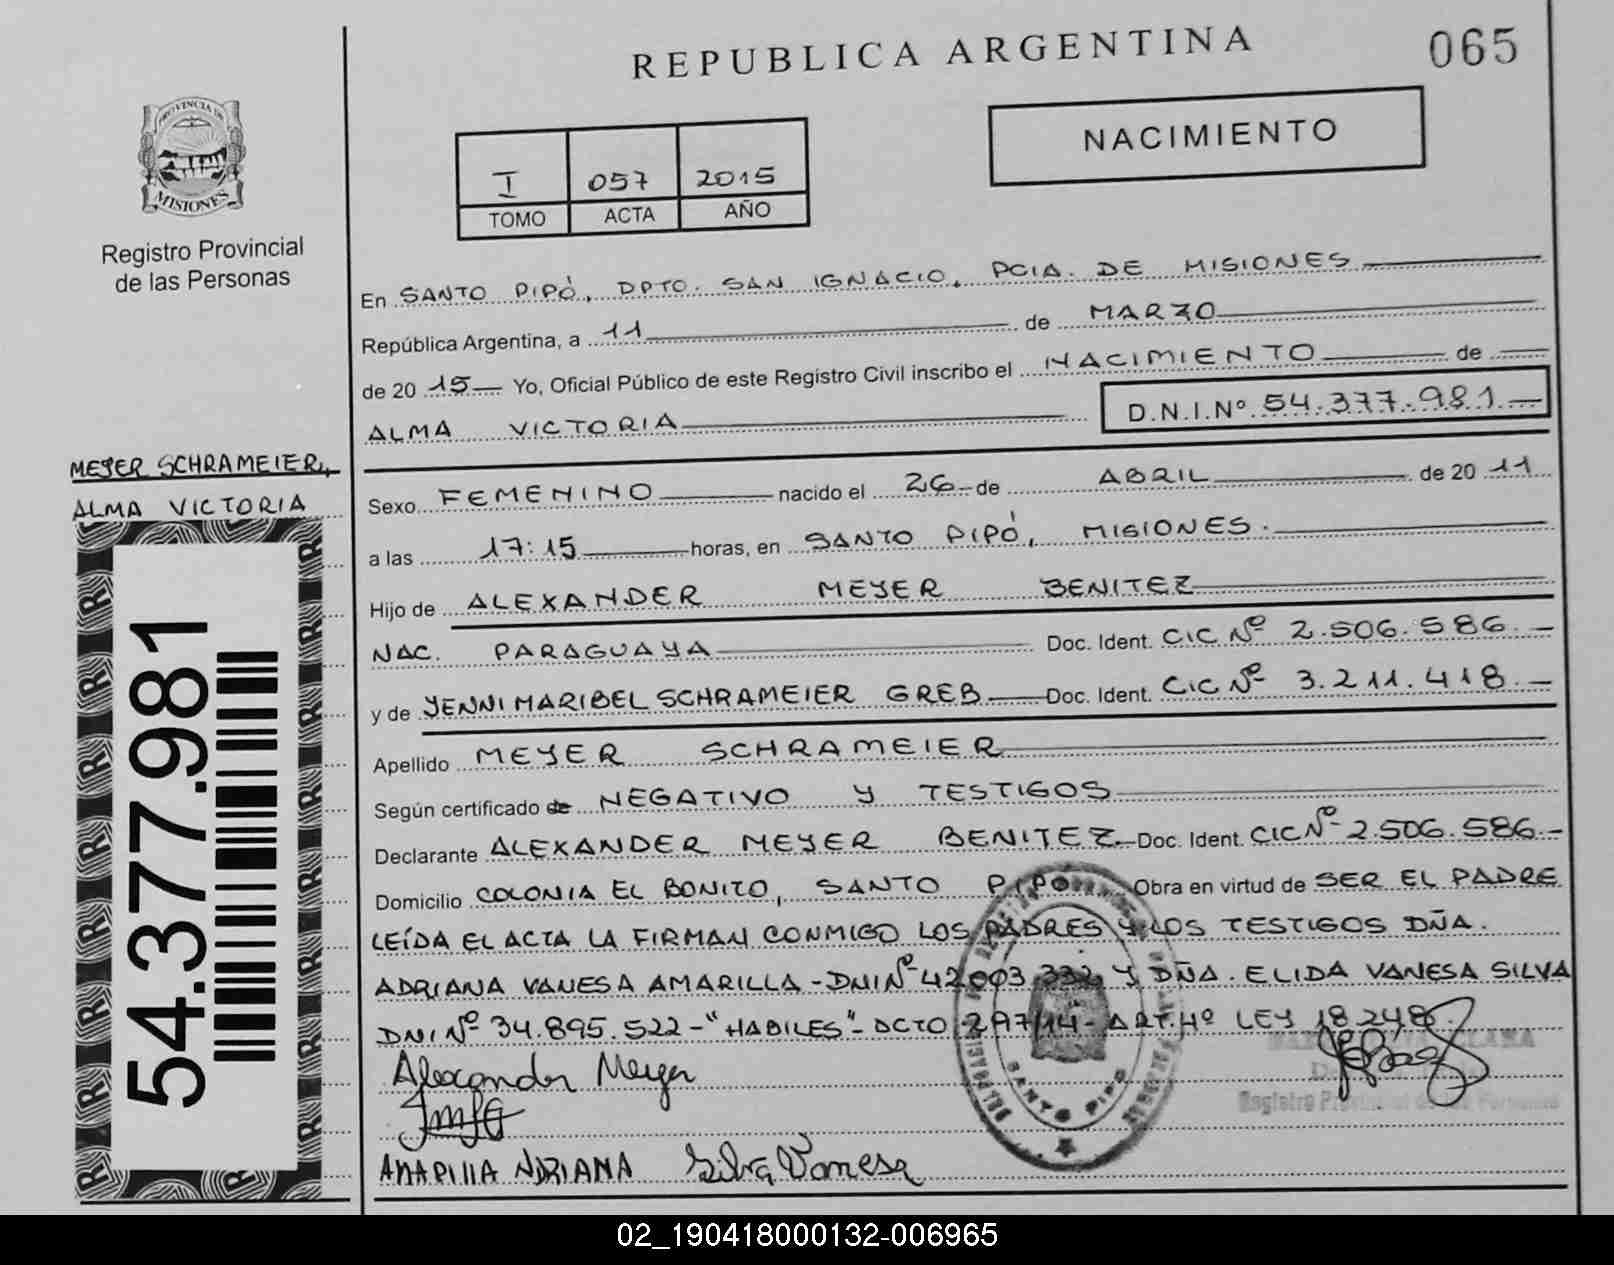 REPUBLICA ARGENTINA
065
PROVINCIA DE
MISIONES
Registro Provincial
de las Personas
I 057 2015
TOMO ACTA AÑO
NACIMIENTO
En SANTO PIPÓ, DPTO. SAN IGNACIO, PCIA. DE MISIONES
República Argentina, a 11 de MARZO
de 20 15 Yo, Oficial Público de este Registro Civil inscribo el NACIMIENTO de
ALMA VICTORIA
D.N.I.Nº 54.377.981
MEYER SCHRAMEIER,
ALMA VICTORIA
54.377.981
Sexo FEMENINO nacido el 26 de ABRIL de 20 11
a las 17:15 horas, en SANTO PIPÓ, MISIONES.
Hijo de ALEXANDER MEYER BENITEZ
NAC. PARAGUAYA Doc. Ident. CIC Nº 2.506.586.
y de YENNI MARIBEL SCHRAMEIER GREB Doc. Ident. CIC Nº 3.211.418.
Apellido MEYER SCHRAMEIER
Según certificado de NEGATIVO Y TESTIGOS
Declarante ALEXANDER MEYER BENITEZ Doc. Ident. CIC Nº 2.506.586.
Domicilio COLONIA EL BONITO, SANTO PIPO Obra en virtud de SER EL PADRE
LEÍDA EL ACTA LA FIRMAN CONMIGO LOS PADRES Y LOS TESTIGOS DÑA.
ADRIANA VANESA AMARILLA - DNI Nº 42.003.332 Y DÑA. ELIDA VANESA SILVA
DNI Nº 34.895.522 - "HABILES" - DCTO 297/14 - ART. 4º LEY 18.248.
Alexander Meyer
AMARILLA ADRIANA Silva Vanesa
SANTO PIPO
Registro Provincial de las Personas
02_190418000132-006965